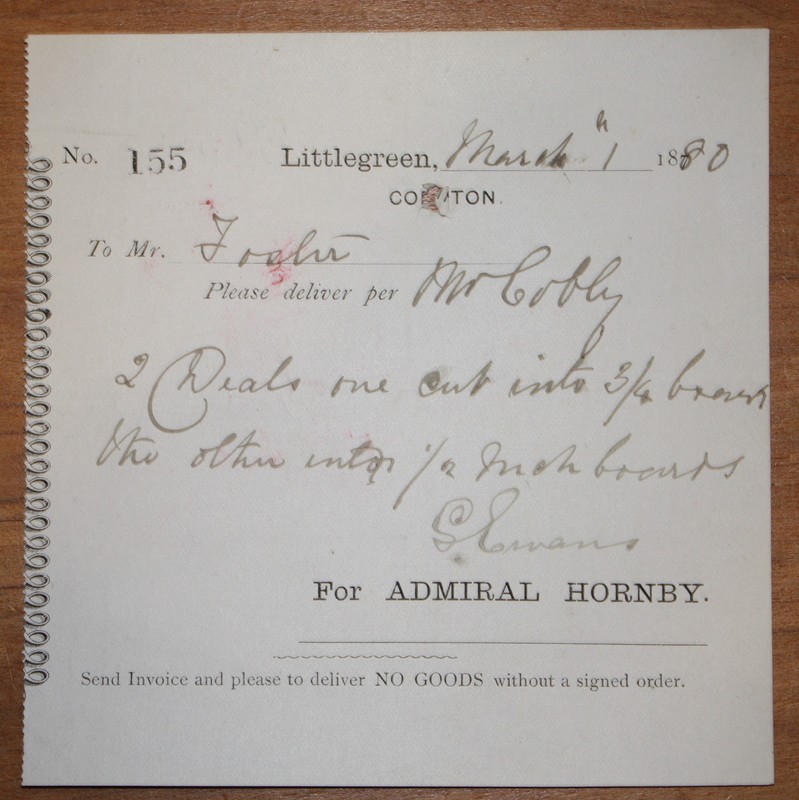 No. 155 Littlegreen, March 1 1880
CO TON.
To Mr. Foster
Please deliver per Mr Cobby
2 Deals one cut into 3/4 boards
the other into 1/2 Inch boards
G Evans
For ADMIRAL HORNBY.
Send Invoice and please to deliver NO GOODS without a signed order.